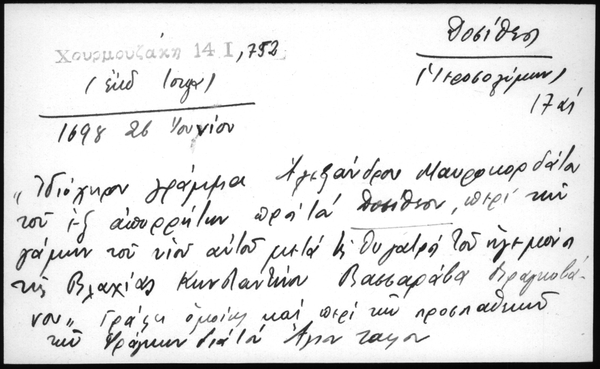 Χουρμουζάκη 14 I, 752
(ἐκδ Ἰοργα)
1698 26 Ἰουνίου
Δοσίθεος
(Ἱεροσολύμων)
17 αἰ
„Ἰδιόχειρον γράμμα Ἀλεξάνδρου Μαυροκορδάτου
τοῦ ἐξ ἀπορρήτων πρὸς τὸν Δοσίθεον, περὶ τῶν
γάμων τοῦ υἱοῦ αὐτοῦ μετὰ τῆς θυγατρὸς τοῦ ἡγεμόνος
τῆς Βλαχίας Κωνσταντίνου Βασσαράβα Βραγκοβά-
νου„ Γράφει ὁμοίως καὶ περὶ τῶν προσπαθειῶν
τῶν Φράγκων διὰ τὸν Ἅγιον τάφον